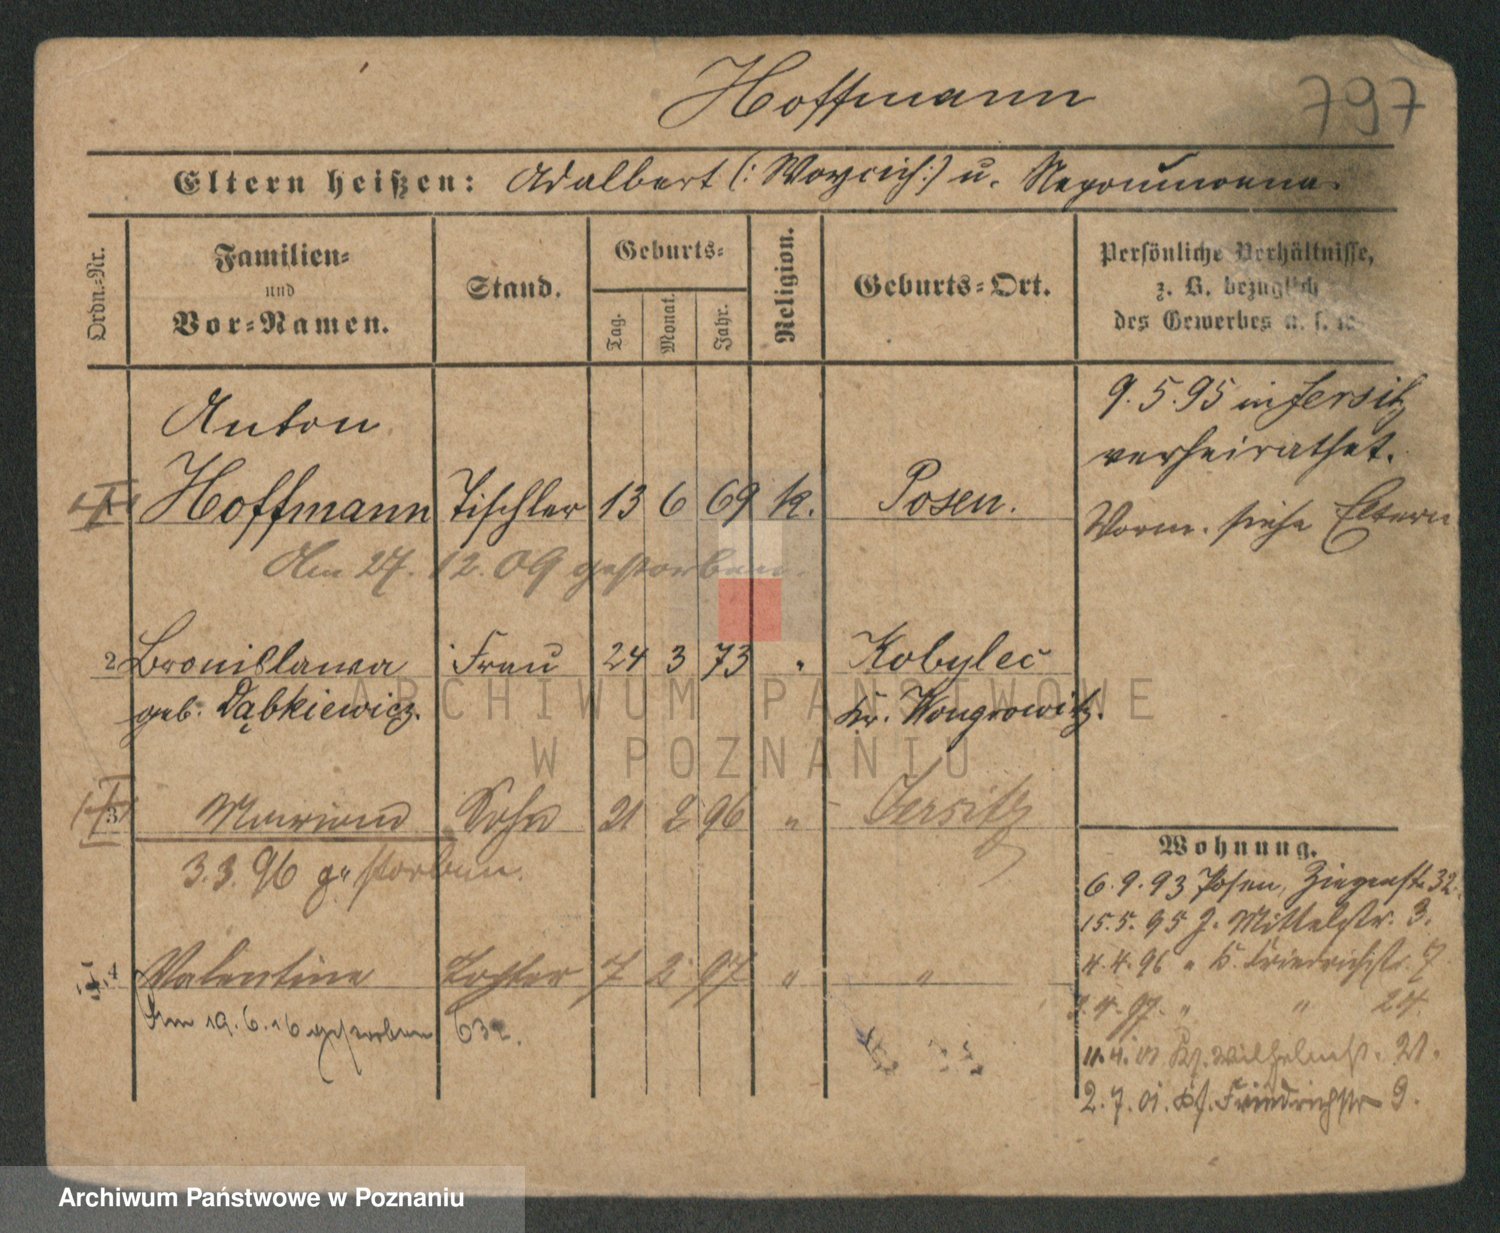 Hoffmann
797
Eltern heißen: Adalbert (: Woycich :) u. Nepomucena.
Ordn.-Nr.
Familien-
und
Vor-Namen.
Stand.
Geburts-
Tag.
Monat.
Jahr.
Religion.
Geburts-Ort.
Persönliche Verhältnisse,
z. B. bezüglich
des Gewerbes u. s. w.
Anton
Hoffmann Tischler 13 6 69 k. Posen.
Am 27. 12. 09 gestorben.
9. 5. 95 in Jersitz
verheirathet.
Vorm. siehe Eltern
2 Bronislawa Frau 24 3 73 " Kobylec
geb. Dąbkiewicz. Kr. Wongrowitz.
3 Marian Sohn 21 2 96 " Jersitz
3. 3. 96 gestorben.
4 Valentine Tochter 7 2 97 " "
Am 19. 6. 16 gestorben 632.
Wohnung.
6. 9. 93 Posen, Ziegenstr. 32.
15. 5. 95 J. Mittelstr. 3.
4. 4. 96 " K. Friedrichstr. 7
4. 97. " " 24.
11. 4. 01 Wilhelmst. 21.
2. 7. 01. Friedrichstr 9.
ARCHIWUM PAŃSTWOWE
W POZNANIU
Archiwum Państwowe w Poznaniu